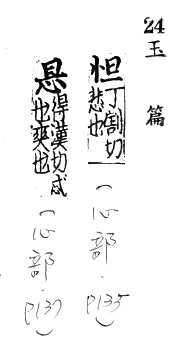 24
玉篇
怛 丁割切
悲也
(心部. P135)
得漢切忒
也爽也
(心部. P137)